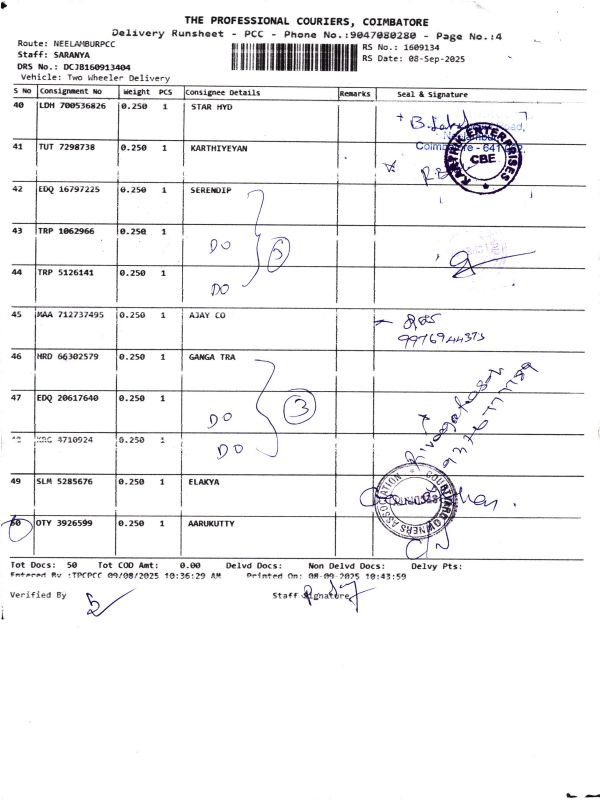 THE PROFESSIONAL COURIERS, COIMBATORE
Delivery Runsheet - PCC - Phone No.:9047080280 - Page No.:4
Route: NEELAMBURPCC
Staff: SARANYA
DRS No.: DCJB160913404
Vehicle: Two Wheeler Delivery
RS No.: 1609134
RS Date: 08-Sep-2025
S No Consignment No Weight PCS Consignee Details Remarks Seal & Signature
40 LDH 700536826 0.250 1 STAR HYD
41 TUT 7298738 0.250 1 KARTHIYEYAN
KARTHIK ENTERPRISES
CBE
42 EDQ 16797225 0.250 1 SERENDIP
43 TRP 1062966 0.250 1
DO
5
44 TRP 5126141 0.250 1
DO
45 MAA 712737495 0.250 1 AJAY CO
9976944373
46 HRD 66302579 0.250 1 GANGA TRA
47 EDQ 20617640 0.250 1
DO
3
4710924 0.250 1
DO
49 SLM 5285676 0.250 1 ELAKYA
COURTYARD OWNERS ASSOCIATION
50 OTY 3926599 0.250 1 AARUKUTTY
Tot Docs: 50 Tot COD Amt: 0.00 Delvd Docs: Non Delvd Docs: Delvy Pts:
Entered By :TPCPCC 09/08/2025 10:36:29 AM Printed On: 08-09-2025 10:43:59
Verified By
Staff Signature